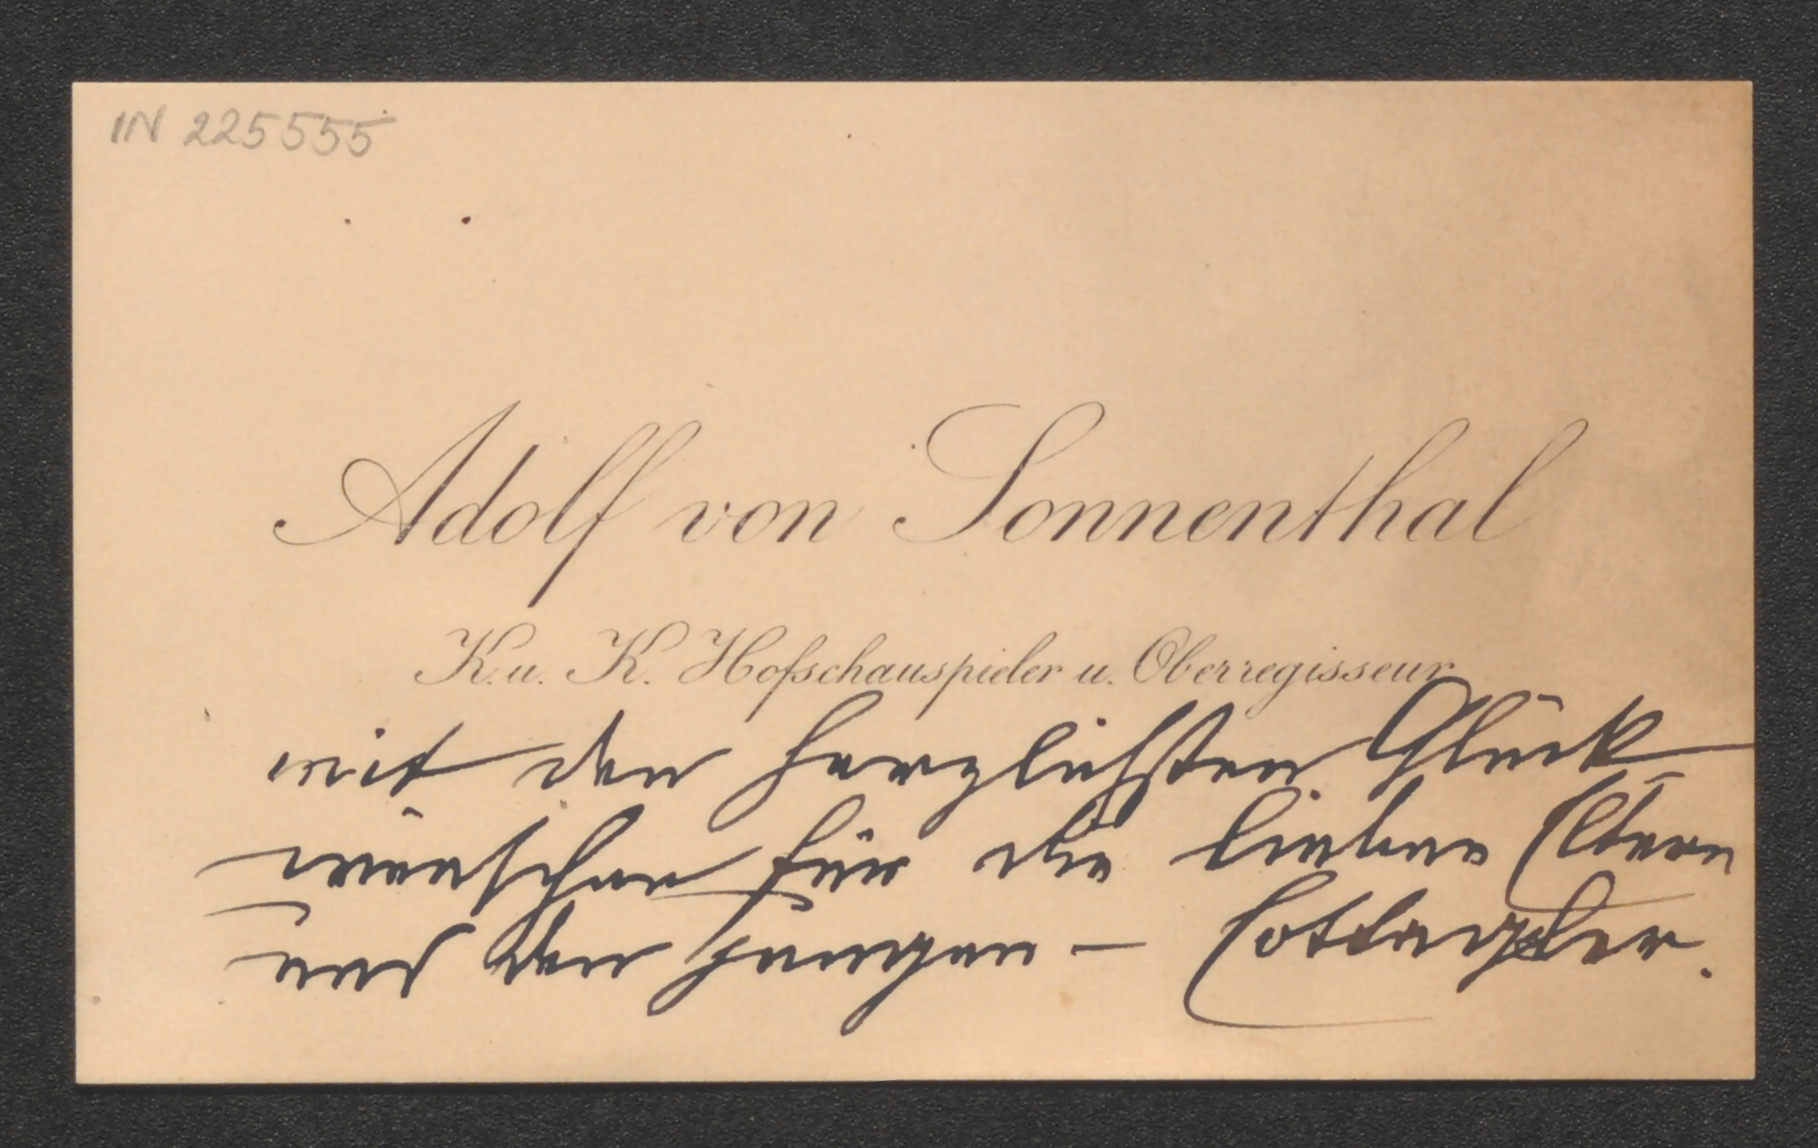 IN 225555
Adolf von Sonnenthal
K. u. K. Hofschauspieler u. Oberregisseur
mit den herzlichsten Glück
wünschen für die lieben Eltern
und den jungen – Cottagler.